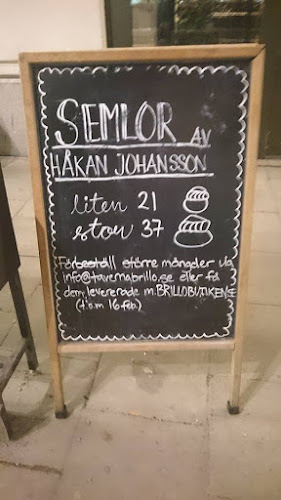 SEMLOR AV
HÅKAN JOHANSSON
liten 21
stor 37
Förbeställ större mängder via
info@tavernabrillo.se eller få
dem levererade m. BRILLOBUTIKEN.SE
(t.o.m 16 feb.)